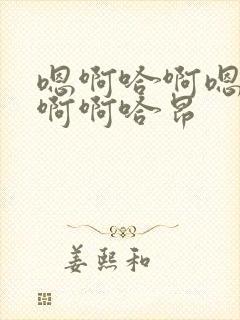 嗯啊哈啊嗯
啊啊哈昂
姜熙和